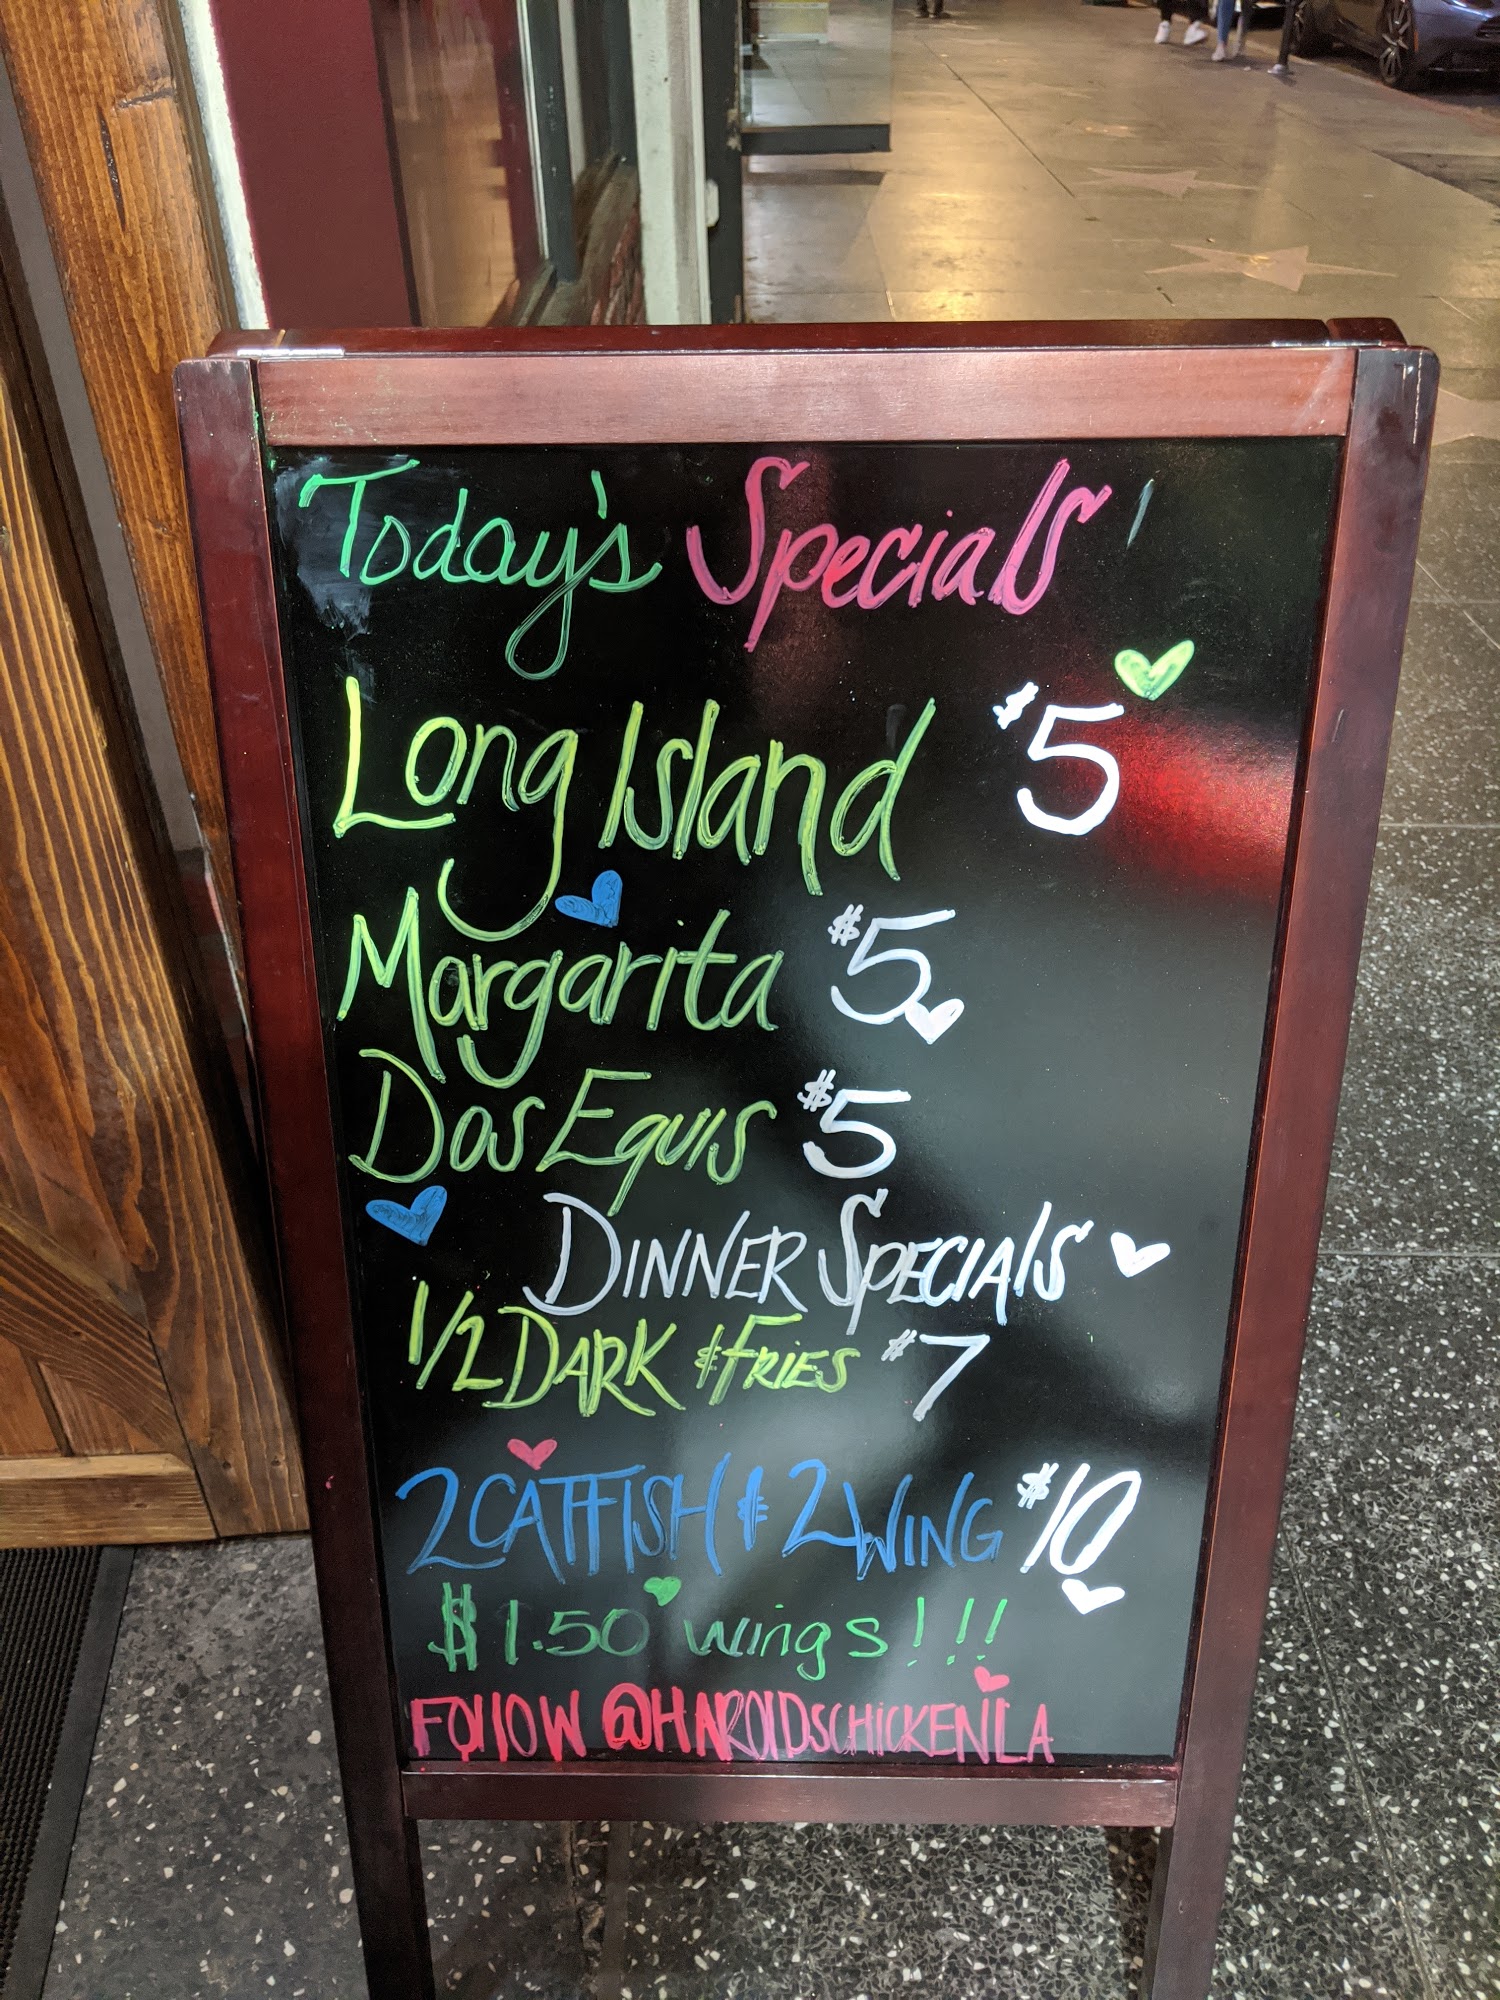 Today's Specials
Long Island $5
Margarita $5
Dos Equis $5
DINNER SPECIAlS
1/2 DARK & FRIES $7
2 CATFISH & 2 WING $10
$1.50 wings!!!
FOllOW @HAROlDSCHiCKENLA